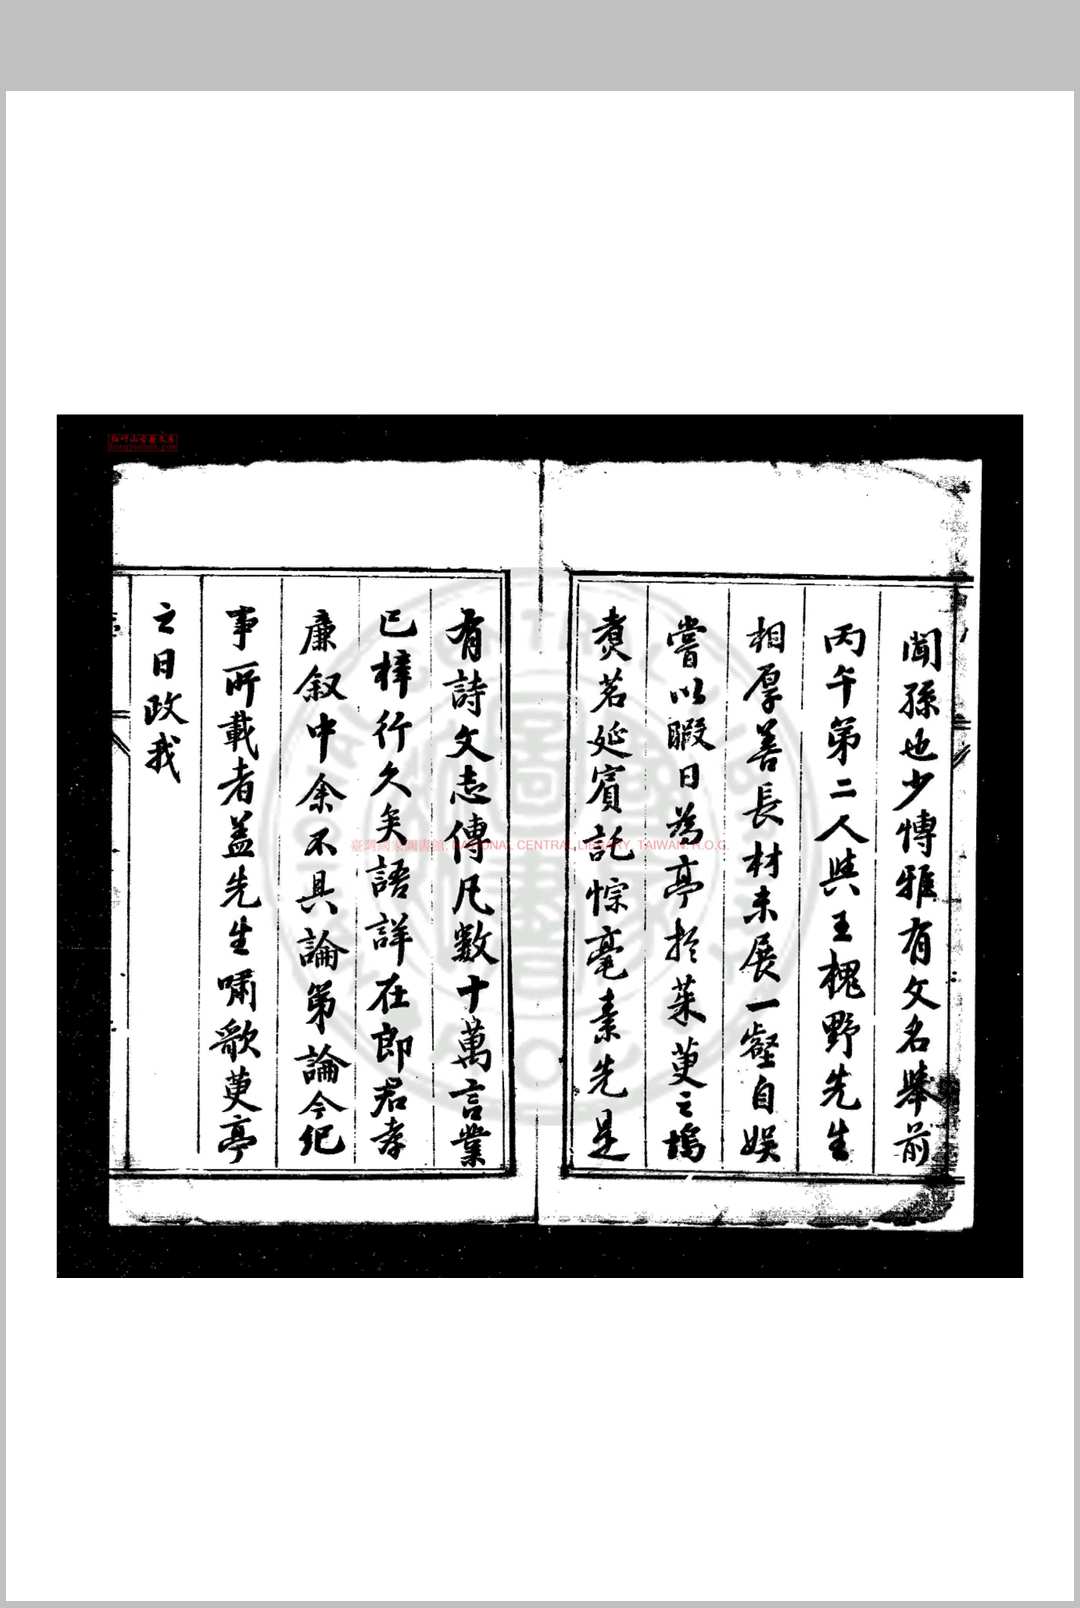 聞孫也少博雅有文名舉前
丙午第二人與王槐野先生
相厚善長材未展一壑自娛
嘗以暇日為亭於茱萸之塢
煑茗延賓託悰毫素先是
有詩文志傳凡數十萬言業
已梓行久矣語詳在郎君孝
廉叙中余不具論第論今紀
事所載者盖先生嘯歌萸亭
之日政我
臺灣國家圖書館, NATIONAL CENTRAL LIBRARY, TAIWAN, R.O.C.